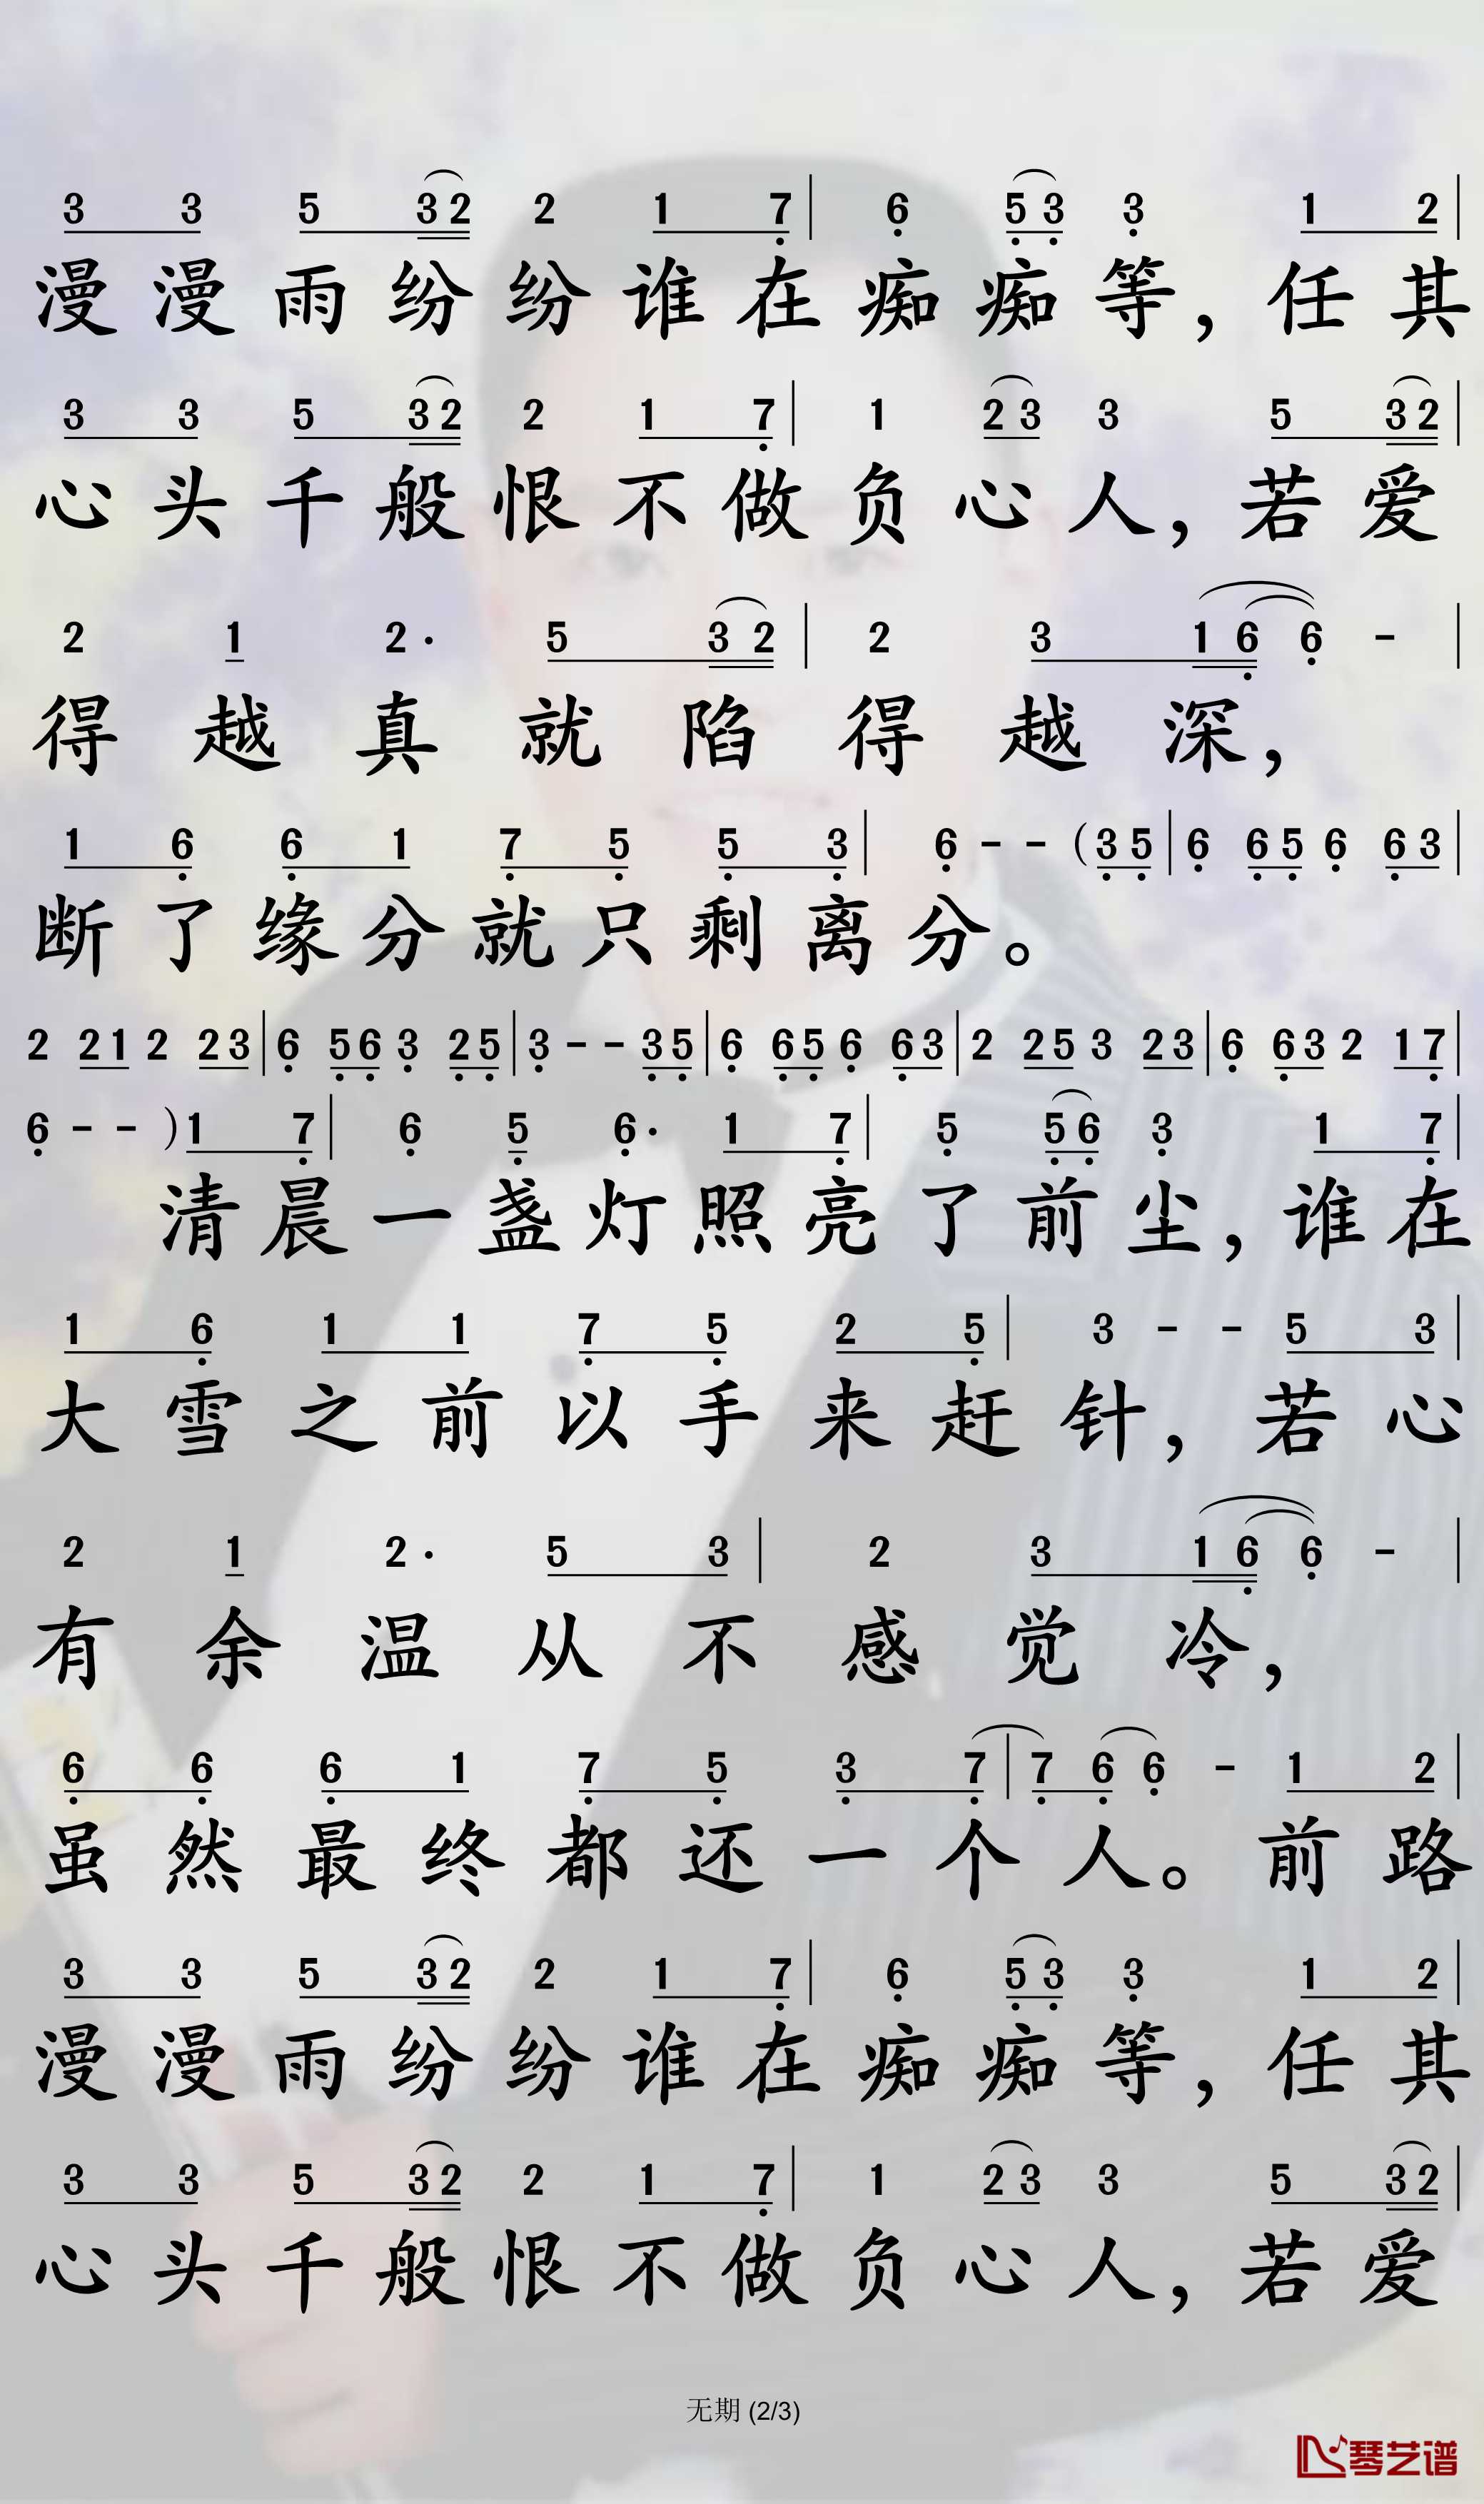 3 3 5 3 2 2 1 7 | 6 5 3 3 1 2 |
漫漫雨纷纷谁在痴痴等，任其
3 3 5 3 2 2 1 7 | 1 2 3 3 5 3 2 |
心头千般恨不做负心人，若爱
2 1 2· 5 3 2 | 2 3 1 6 6 - |
得越真就陷得越深，
1 6 6 1 7 5 5 3 | 6 - - (3 5 | 6 6 5 6 6 3 |
断了缘分就只剩离分。
2 2 1 2 2 3 | 6 5 6 3 2 5 | 3 - - 3 5 | 6 6 5 6 6 3 | 2 2 5 3 2 3 | 6 6 3 2 1 7 |
6 - - ) 1 7 | 6 5 6· 1 7 | 5 5 6 3 1 7 |
清晨一盏灯照亮了前尘，谁在
1 6 1 1 7 5 2 5 | 3 - - 5 3 |
大雪之前以手来赶针，若心
2 1 2· 5 3 | 2 3 1 6 6 - |
有余温从不感觉冷，
6 6 6 1 7 5 3 7 | 7 6 6 - 1 2 |
虽然最终都还一个人。前路
3 3 5 3 2 2 1 7 | 6 5 3 3 1 2 |
漫漫雨纷纷谁在痴痴等，任其
3 3 5 3 2 2 1 7 | 1 2 3 3 5 3 2 |
心头千般恨不做负心人，若爱
无期 (2/3)
琴艺谱